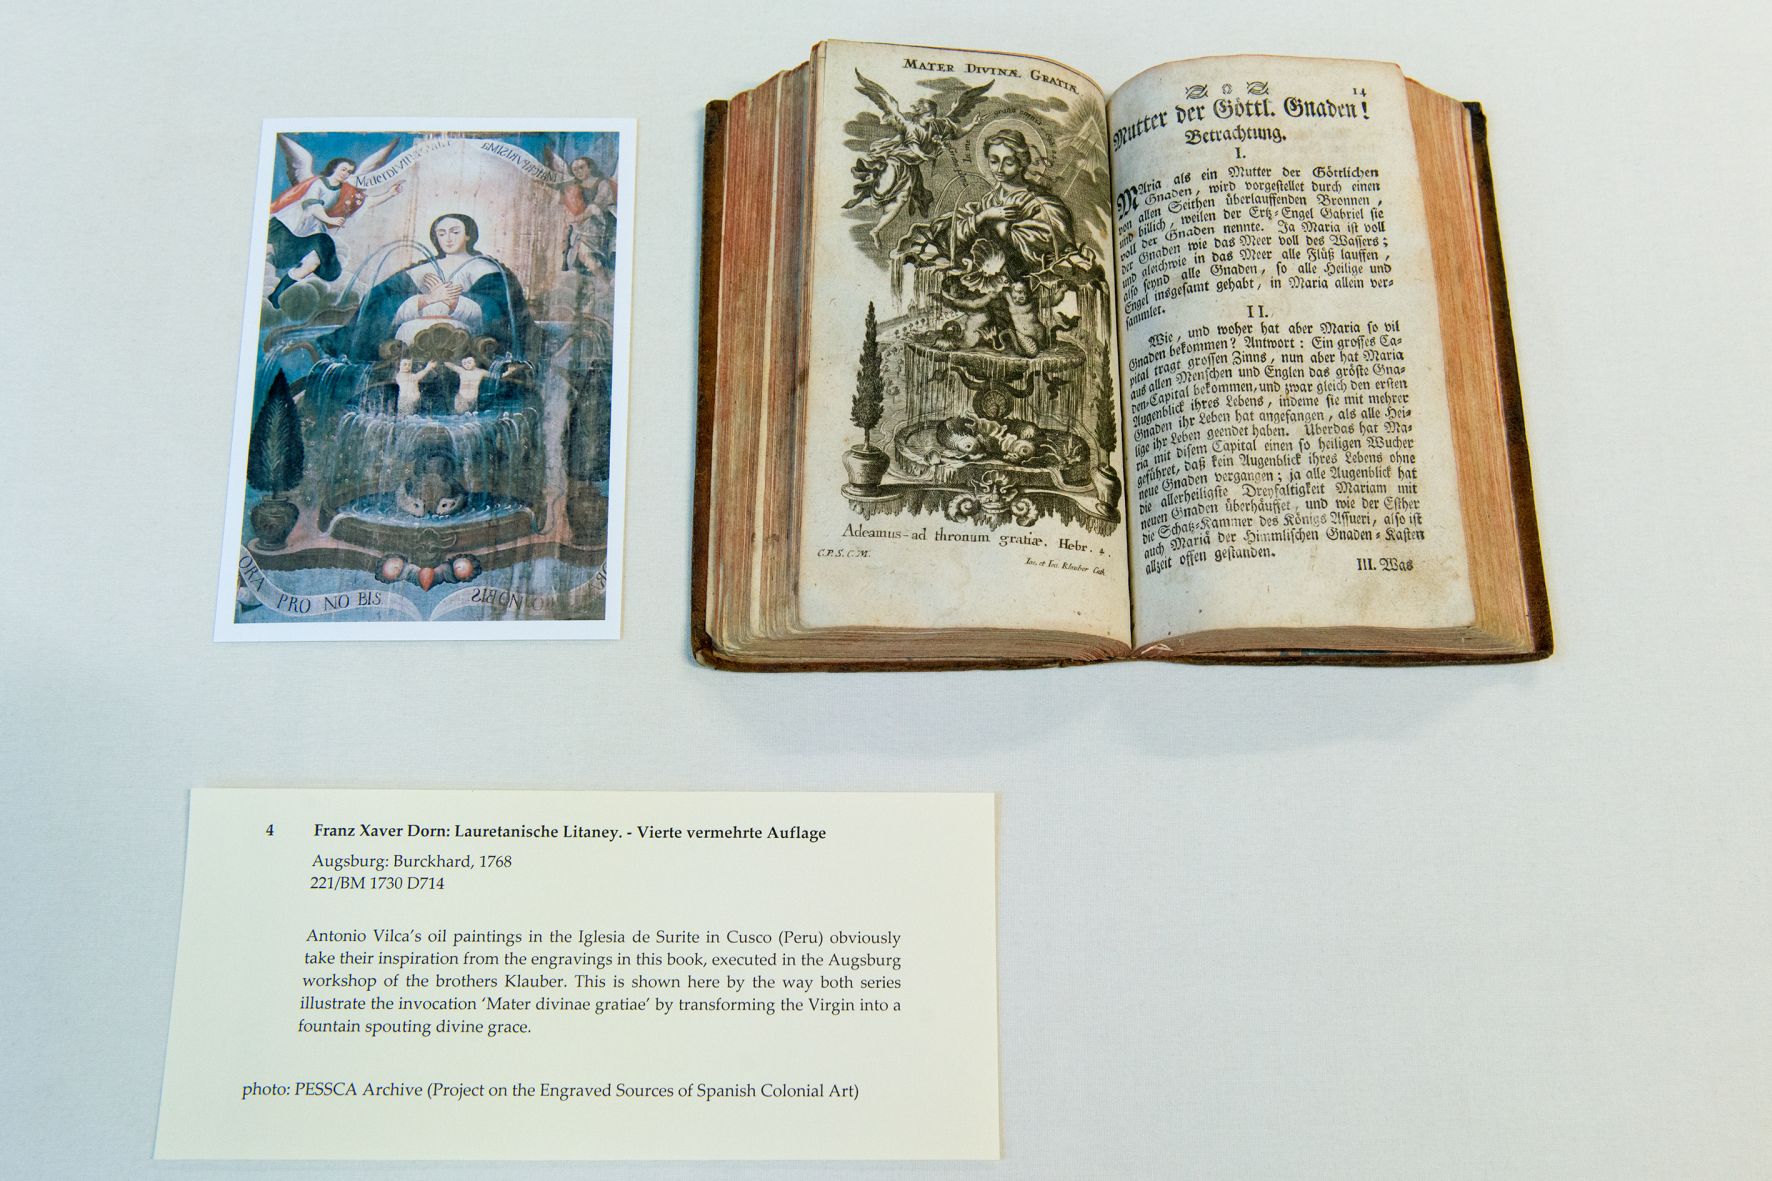 Mater DIVINAE
PURISIMA
ORA
PRO NO BIS
NOBIS
MATER DIVINÆ. GRATIÆ.
Adeamus - ad thronum gratiæ. Hebr. 4.
C.P.S.C.M.
Jos. et Joa. Klauber Cath.
14
Mutter der Göttl. Gnaden!
Betrachtung.
I.
MAria als ein Mutter der Göttlichen
Gnaden, wird vorgestellet durch einen
von allen Seithen überlauffenden Bronnen,
und billich, weilen der Ertz-Engel Gabriel sie
voll der Gnaden nennte. Ja Maria ist voll
der Gnaden wie das Meer voll des Wassers;
und gleichwie in das Meer alle Flüß lauffen,
also seynd alle Gnaden, so alle Heilige und
Engel insgesamt gehabt, in Maria allein ver-
sammlet.
II.
Wie, und woher hat aber Maria so vil
Gnaden bekommen? Antwort: Ein grosses Ca-
pital tragt grossen Zinns, nun aber hat Maria
aus allen Menschen und Englen das gröste Gna-
den-Capital bekommen, und zwar gleich den ersten
Augenblick ihres Lebens, indeme sie mit mehrer
Gnaden ihr Leben hat angefangen, als alle Hei-
lige ihr Leben geendet haben. Überdas hat Ma-
ria mit disem Capital einen so heiligen Wucher
geführet, daß kein Augenblick ihres Lebens ohne
neue Gnaden vergangen; ja alle Augenblick hat
die allerheiligste Dreyfaltigkeit Mariam mit
neuen Gnaden überhäuffet, und wie der Esther
die Schatz-Kammer des Königs Assueri, also ist
auch Mariä der Himmlischen Gnaden-Kasten
allzeit offen gestanden.
III. Was
4 Franz Xaver Dorn: Lauretanische Litaney. - Vierte vermehrte Auflage
Augsburg: Burckhard, 1768
221/BM 1730 D714
Antonio Vilca's oil paintings in the Iglesia de Surite in Cusco (Peru) obviously
take their inspiration from the engravings in this book, executed in the Augsburg
workshop of the brothers Klauber. This is shown here by the way both series
illustrate the invocation ‘Mater divinae gratiae’ by transforming the Virgin into a
fountain spouting divine grace.
photo: PESSCA Archive (Project on the Engraved Sources of Spanish Colonial Art)